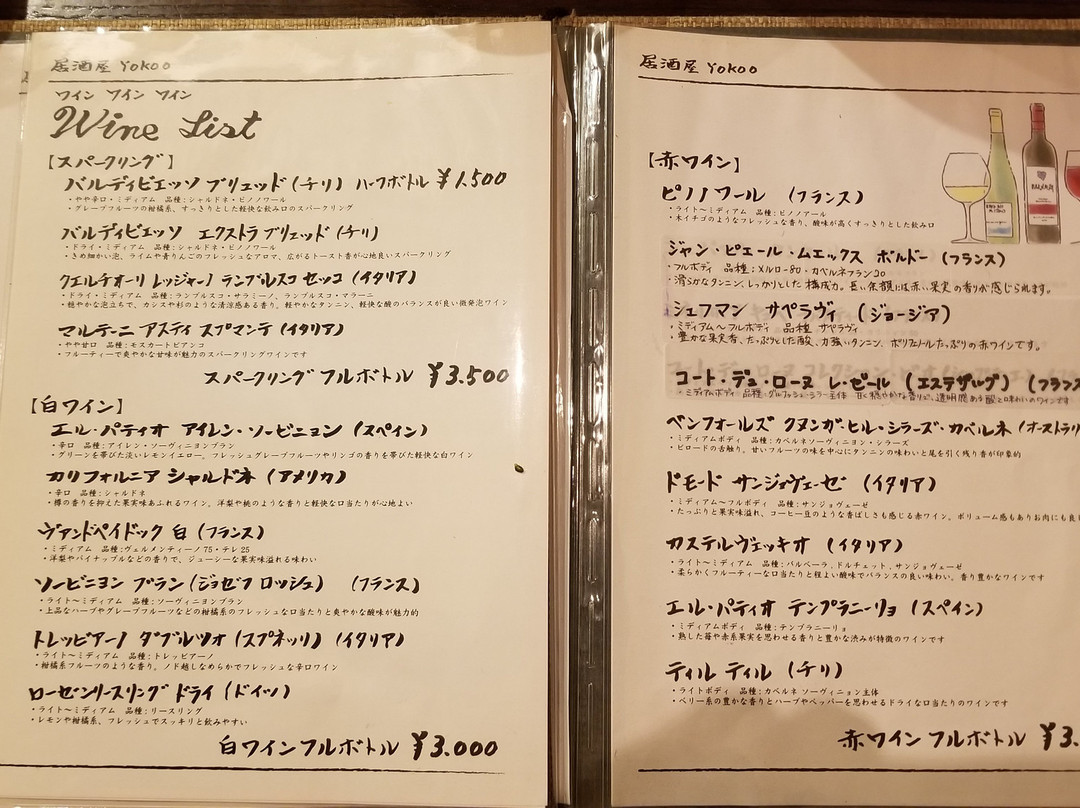 居酒屋 Yokoo
ワイン ワイン ワイン
Wine List
【スパークリング】
バルディビエッソ ブリュッド(チリ) ハーフボトル ¥1,500
・やや辛口・ミディアム 品種:シャルドネ・ピノノワール
・グレープフルーツの柑橘系、すっきりとした軽快な飲み口のスパークリング
バルディビエッソ エクストラ ブリュッド(チリ)
・ドライ・ミディアム 品種:シャルドネ・ピノノワール
・きめ細かい泡、ライムや青りんごのフレッシュなアロマ、広がるトースト香が心地良いスパークリング
クエルチオーリ レッジャーノ ランブルスコ セッコ(イタリア)
・ドライ・ミディアム 品種:ランブルスコ・サラミーノ、ランブルスコ・マラーニ
・穏やかな泡立ちで、カシスや杉のような清涼感ある香り。軽やかなタンニン、軽快な酸のバランスが良い微発泡ワイン
マルテーニ アスティ スプマンテ(イタリア)
・やや甘口 品種:モスカートビアンコ
・フルーティーで爽やかな甘味が魅力のスパークリングワインです
スパークリング フルボトル ¥3.500
【白ワイン】
エル・パティオ アイレン・ソービニョン (スペイン)
・辛口 品種:アイレン・ソーヴィニヨンブラン
・グリーンを帯びた淡いレモンイエロー。フレッシュグレープフルーツやリンゴの香りを帯びた軽快な白ワイン
カリフォルニア シャルドネ (アメリカ)
・辛口 品種:シャルドネ
・樽の香りを抑えた果実味あふれるワイン。洋梨や桃のような香りと軽快な口当たりが心地よい
ヴァンドペイドック 白 (フランス)
・ミディアム 品種:ヴェルメンティーノ75・テレ25
・洋梨やパイナップルなどの香りで、ジューシーな果実味溢れる味わい
ソービニヨン ブラン(ジョゼフ ロッシュ) (フランス)
・ライト～ミディアム 品種:ソーヴィニヨンブラン
・上品なハーブやグレープフルーツなどの柑橘系のフレッシュな口当たりと爽やかな酸味が魅力的
トレッビアーノ ダブルツオ(スプネッリ) (イタリア)
・ライト～ミディアム 品種:トレッビアーノ
・柑橘系フルーツのような香り。ノド越しなめらかでフレッシュな辛口ワイン
ローゼンリースリング ドライ(ドイツ)
・ライト～ミディアム 品種:リースリング
・レモンや柑橘系、フレッシュでスッキリと飲みやすい
白ワインフルボトル ¥3.000
居酒屋 Yokoo
【赤ワイン】
ピノノワール (フランス)
・ライト～ミディアム 品種:ピノノアール
・木イチゴのようなフレッシュな香り、酸味が高くすっきりとした飲み口
ジャン・ピエール・ムエックス ボルドー (フランス)
・フルボディ 品種:メルロー80・カベルネフラン20
・滑らかなタンニン、しっかりとした構成力。長い余韻には赤い果実の香りが感じられます。
シュフマン サペラヴィ (ジョージア)
・ミディアム～フルボディ 品種 サペラヴィ
・豊かな果実香、たっぷりとした酸、力強いタンニン、ポリフェノールたっぷりの赤ワインです。
コート・デュ・ローヌ レ・ゼール (エステザルグ) (フランス
・ミディアムボディ 品種:グルナッシュ・シラー主体
ベンフォールズ クヌンガ・ヒル・シラーズ・カベルネ(オーストラリ
・ミディアムボディ 品種:カベルネソーヴィニヨン・シラーズ
・ビロードの舌触り、甘いフルーツの味を中心にタンニンの味わいと尾を引く残り香が印象的
ドモード サンジョヴェーゼ (イタリア)
・ミディアム～フルボディ 品種:サンジョヴェーゼ
・たっぷりと果実味溢れ、コーヒー豆のような香ばしさも感じる赤ワイン。ボリューム感もありお肉にも良
カステルヴェッキオ (イタリア)
・ライト～ミディアム 品種:バルベーラ、ドルチェット、サンジョヴェーゼ
・柔らかくフルーティーな口当たりと程よい酸味でバランスの良い味わい。香り豊かなワインです
エル・パティオ テンプラニーリョ(スペイン)
・ミディアムボディ 品種:テンプラニーリョ
・熟した苺や赤系果実を思わせる香りと豊かな渋みが特徴のワインです
ティル ティル (チリ)
・ライトボディ 品種:カベルネ ソーヴィニョン主体
・ベリー系の豊かな香りとハーブやペッパーを思わせるドライな口当たりのワインです
赤ワインフルボトル ¥3.